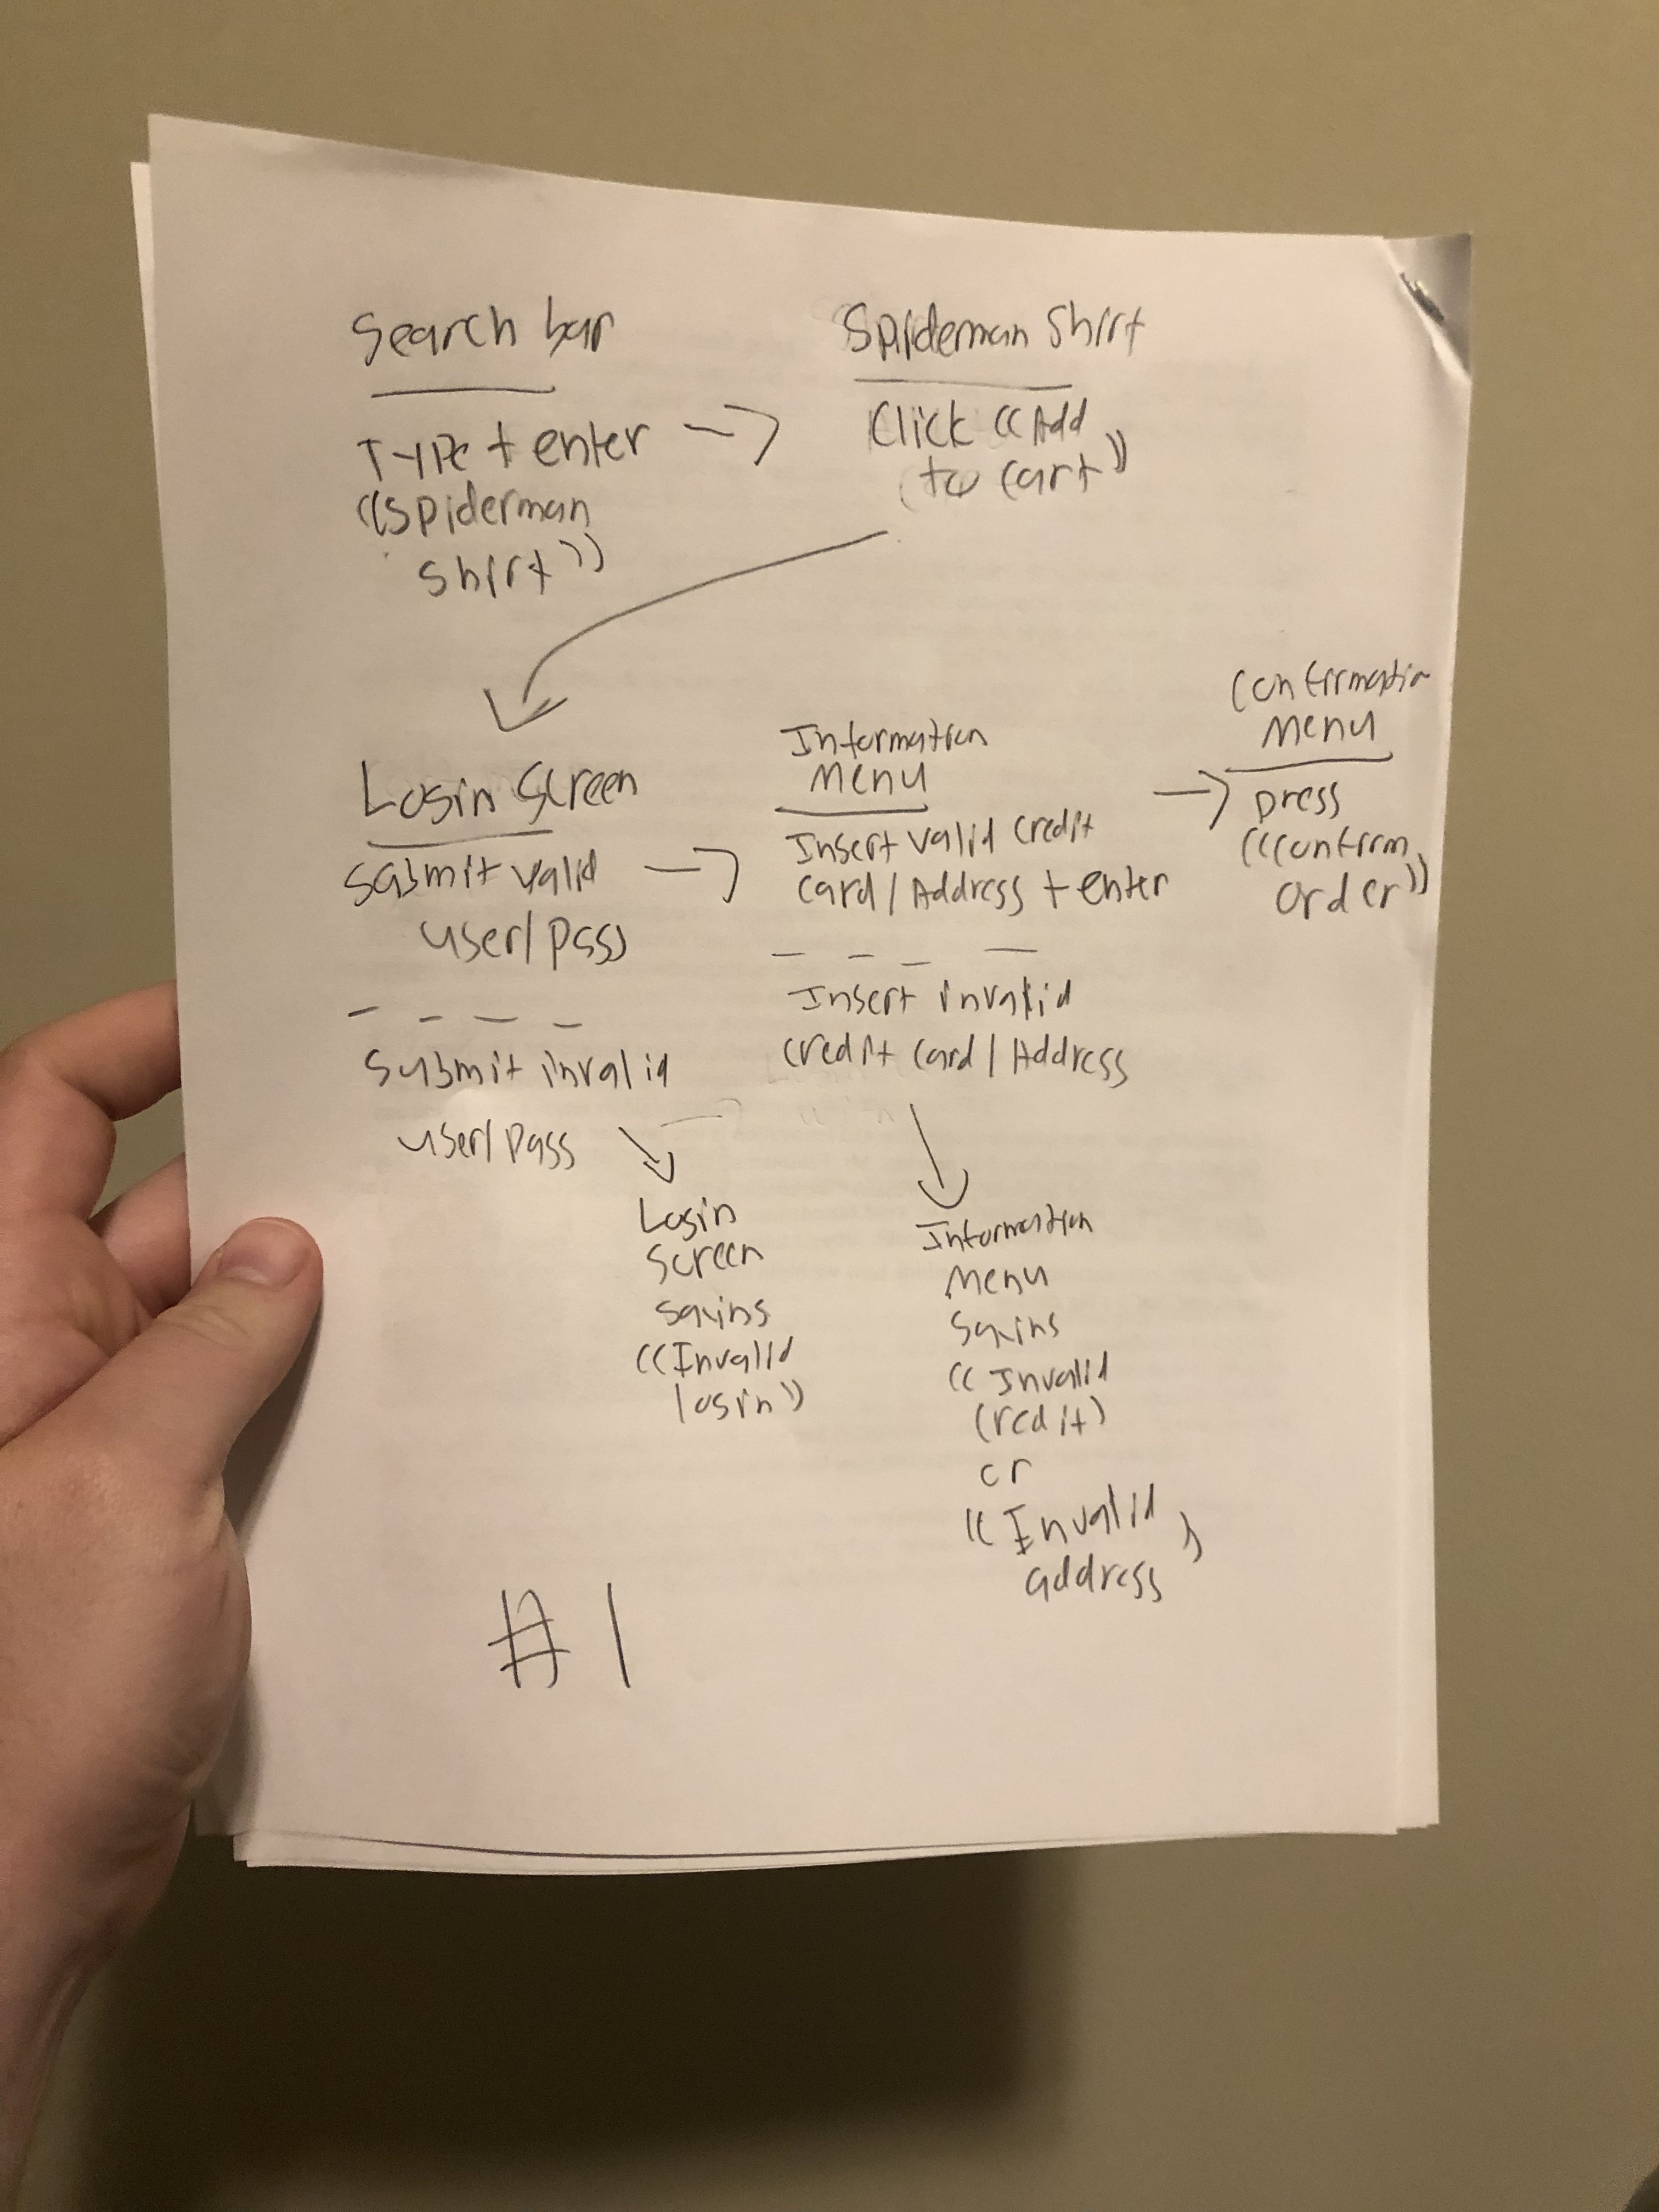 Search bar
Type + enter
"Spiderman
Shirt"
Spiderman Shirt
Click "Add
to cart"
Login Screen
Submit valid
user/pass
Submit invalid
user/pass
Login
Screen
saying
"Invalid
login"
Information
Menu
Insert valid credit
card/Address + enter
Insert invalid
credit card/Address
Information
Menu
Saying
"Invalid
credit"
or
"Invalid
address"
Confirmation
Menu
press
"confirm
order"
#1